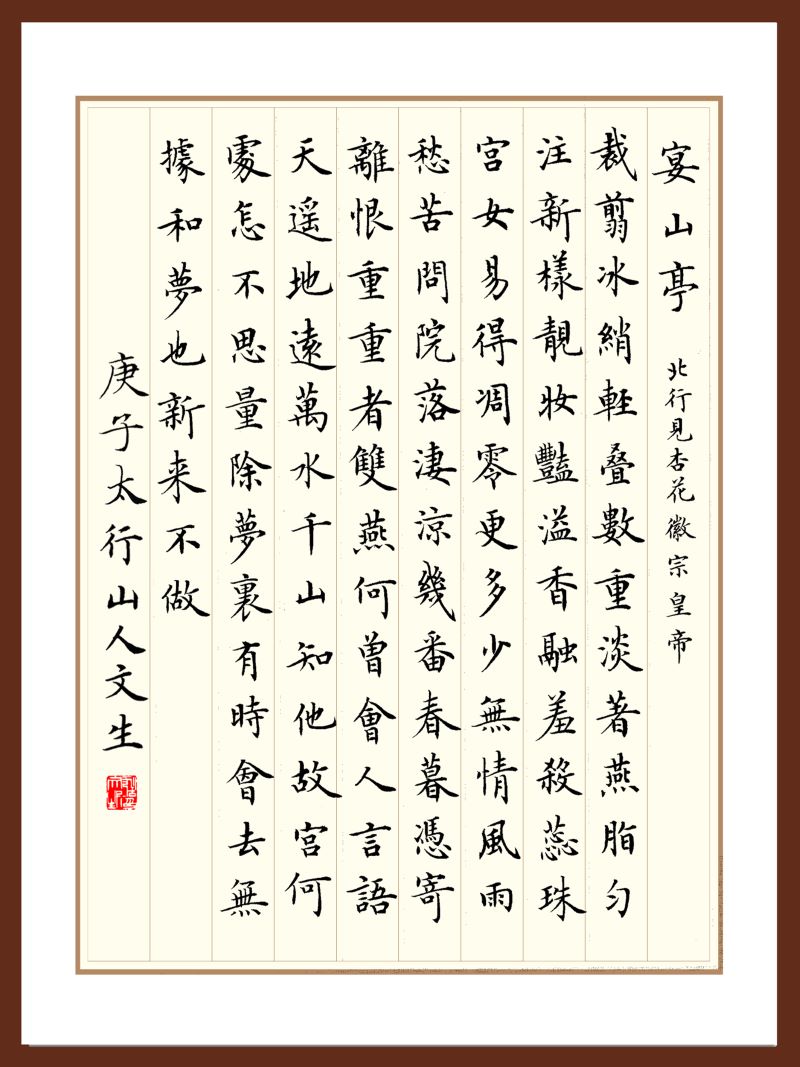 宴山亭 北行見杏花徽宗皇帝
裁翦冰綃輕叠數重淡著燕脂匀
注新樣靚妝豔溢香融羞殺蕊珠
宫女易得凋零更多少無情風雨
愁苦問院落淒涼幾番春暮憑寄
離恨重重者雙燕何曾會人言語
天遥地遠萬水千山知他故宫何
處怎不思量除夢裏有時會去無
據和夢也新来不做
庚子太行山人文生